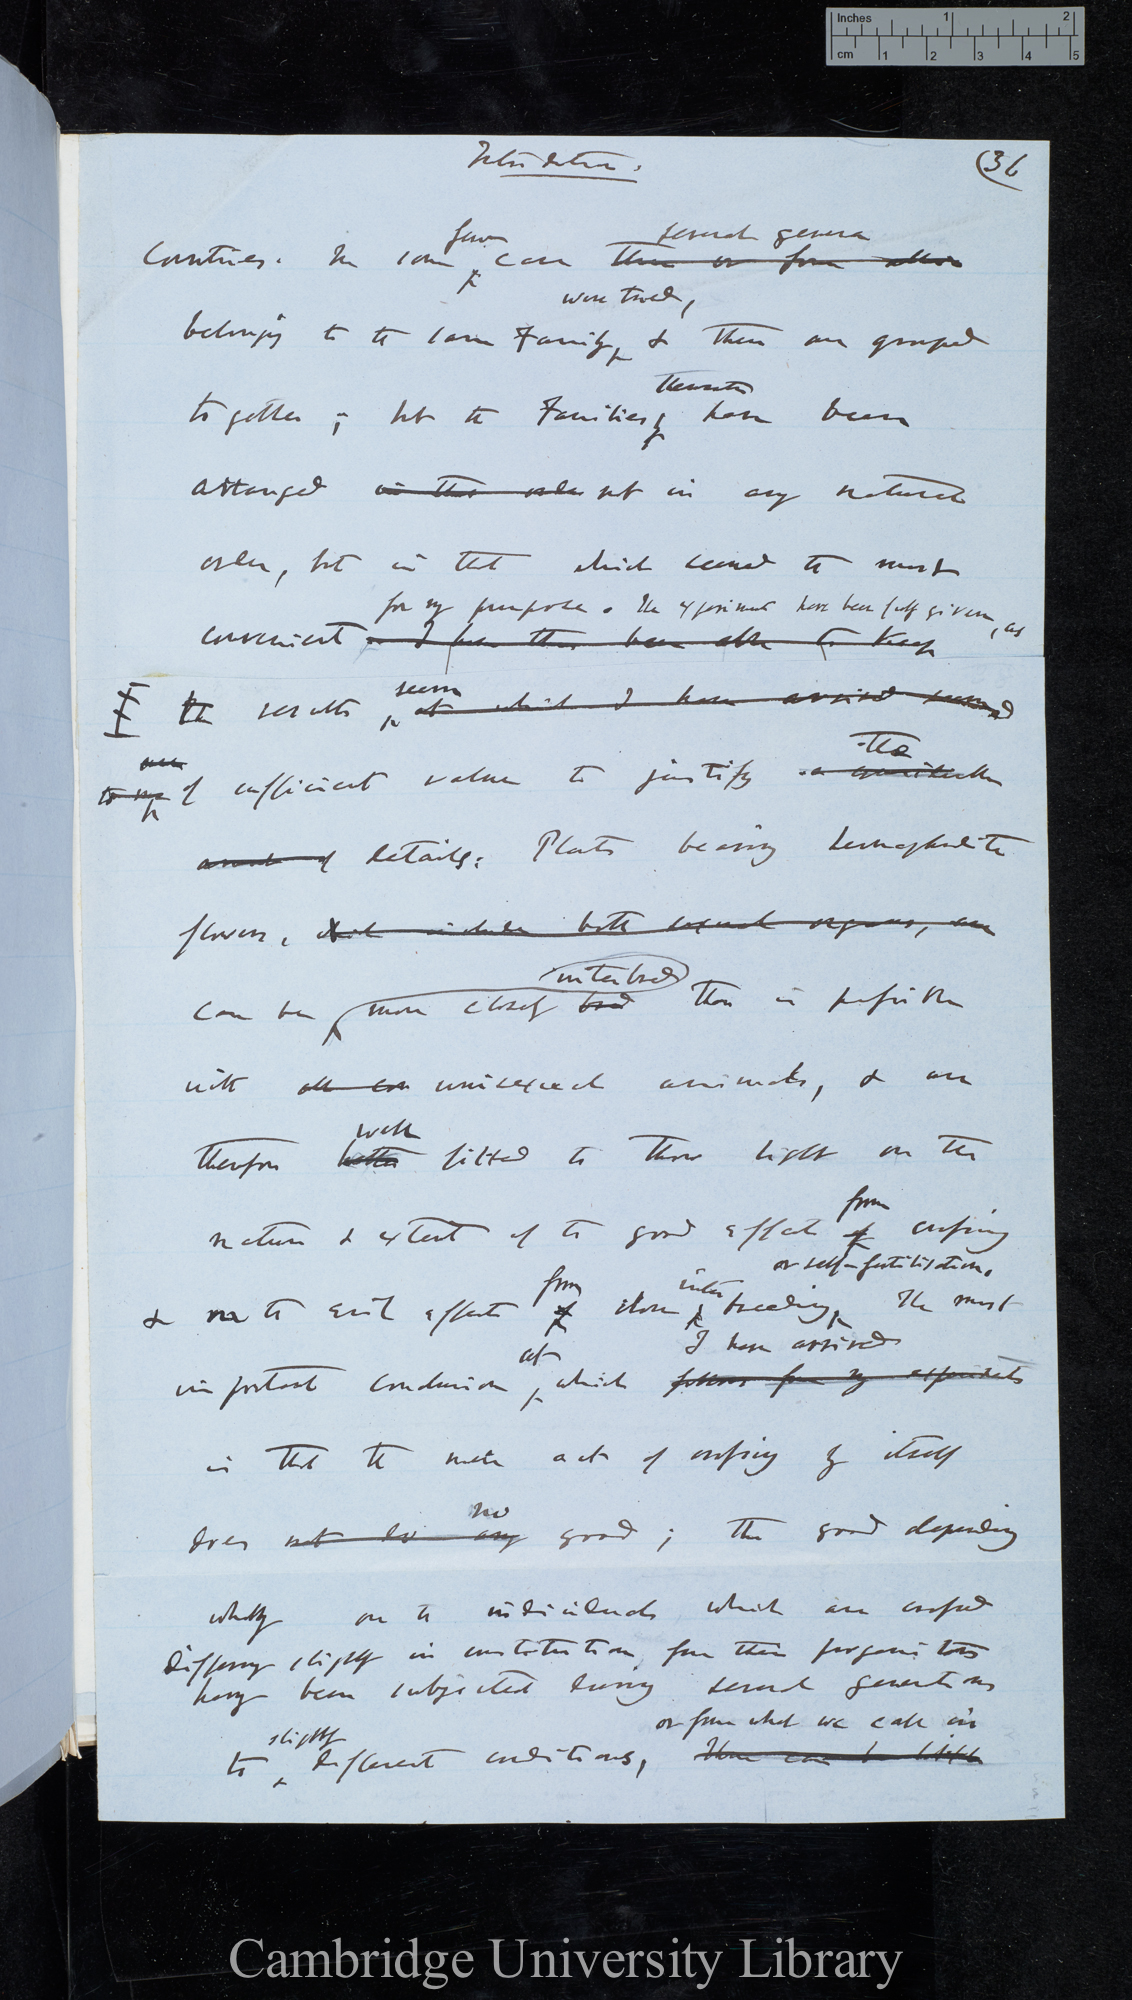 Inches 1 2
cm 1 2 3 4 5
Introduction. (36
few several genera
countries. In some cases three or four allied
were tried,
belonging to the same Family, & these are grouped
themselves
together; but the Families have been
arranged in the order not in any natural
order, but in that which seemed the most
for my purpose. The experiments have been fully given, as
convenient I have thus been able to keep
seem
the results at which I have arrived seemed
the
of sufficient value to justify
amount of details. Plants bearing hermaphrodite
flowers, which include both sexual organs, are
interbred
can be more closely bred than is possible
with all unisexual animals, & are
well
therefore better fitted to throw light on the
from
nature & extent of the good effects of crossing
or self-fertilisation.
from inter
& on the evil effects of close breeding, The most
at I have arrived
important conclusion which follows from my experiments
is that the mere act of crossing by itself
no
does not do any good; the good depending
wholly on the individuals which are crossed
differing slightly in constitution, from their progenitors
having been subjected during several generations
slightly or from what we call in
to different conditions,
Cambridge University Library